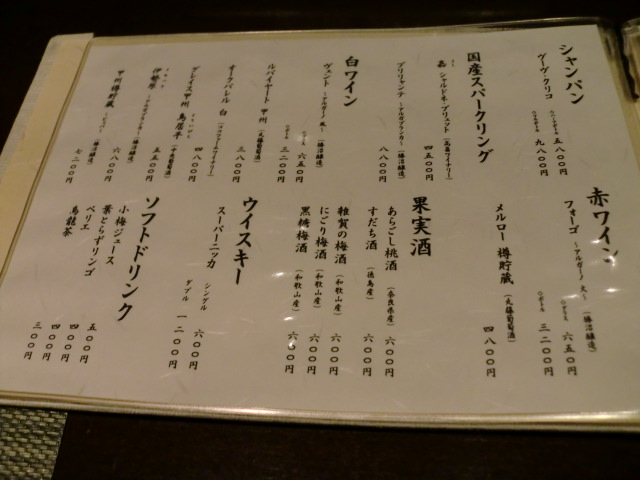 シャンパン
ヴーヴ・クリコ
○ハーフボトル 五八〇〇円
○フルボトル 九八〇〇円
国産スパークリング
嘉 シャルドネ・ブリュット (高畠ワイナリー)
四五〇〇円
ブリリャンテ ～アルガブランカ～ (勝沼醸造)
八八〇〇円
白ワイン
ヴェント ～アルガーノ 風～ (勝沼醸造)
○グラス 六五〇円
○ボトル 三二〇〇円
ルバイヤート 甲州 (丸藤葡萄酒)
三八〇〇円
オークバレル 白 (ココファームワイナリー)
四八〇〇円
グレイス甲州 鳥居平 (中央葡萄酒)
五五〇〇円
伊勢原 (勝沼醸造)
六八〇〇円
甲州樽貯蔵 (勝沼醸造)
七二〇〇円
赤ワイン
フォーゴ ～アルガーノ 火～ (勝沼醸造)
○グラス 六五〇円
○ボトル 三二〇〇円
メルロー 樽貯蔵 (丸藤葡萄酒)
四八〇〇円
果実酒
あらごし桃酒 (奈良県産) 六〇〇円
すだち酒 (徳島産) 六〇〇円
雑賀の梅酒 (和歌山産) 六〇〇円
にごり梅酒 (和歌山産) 六〇〇円
黒糖梅酒 (和歌山産) 六〇〇円
ウイスキー
スーパーニッカ シングル 六〇〇円
ダブル 一二〇〇円
ソフトドリンク
小梅ジュース 五〇〇円
葉とらずリンゴ 四〇〇円
ペリエ 四〇〇円
烏龍茶 三〇〇円